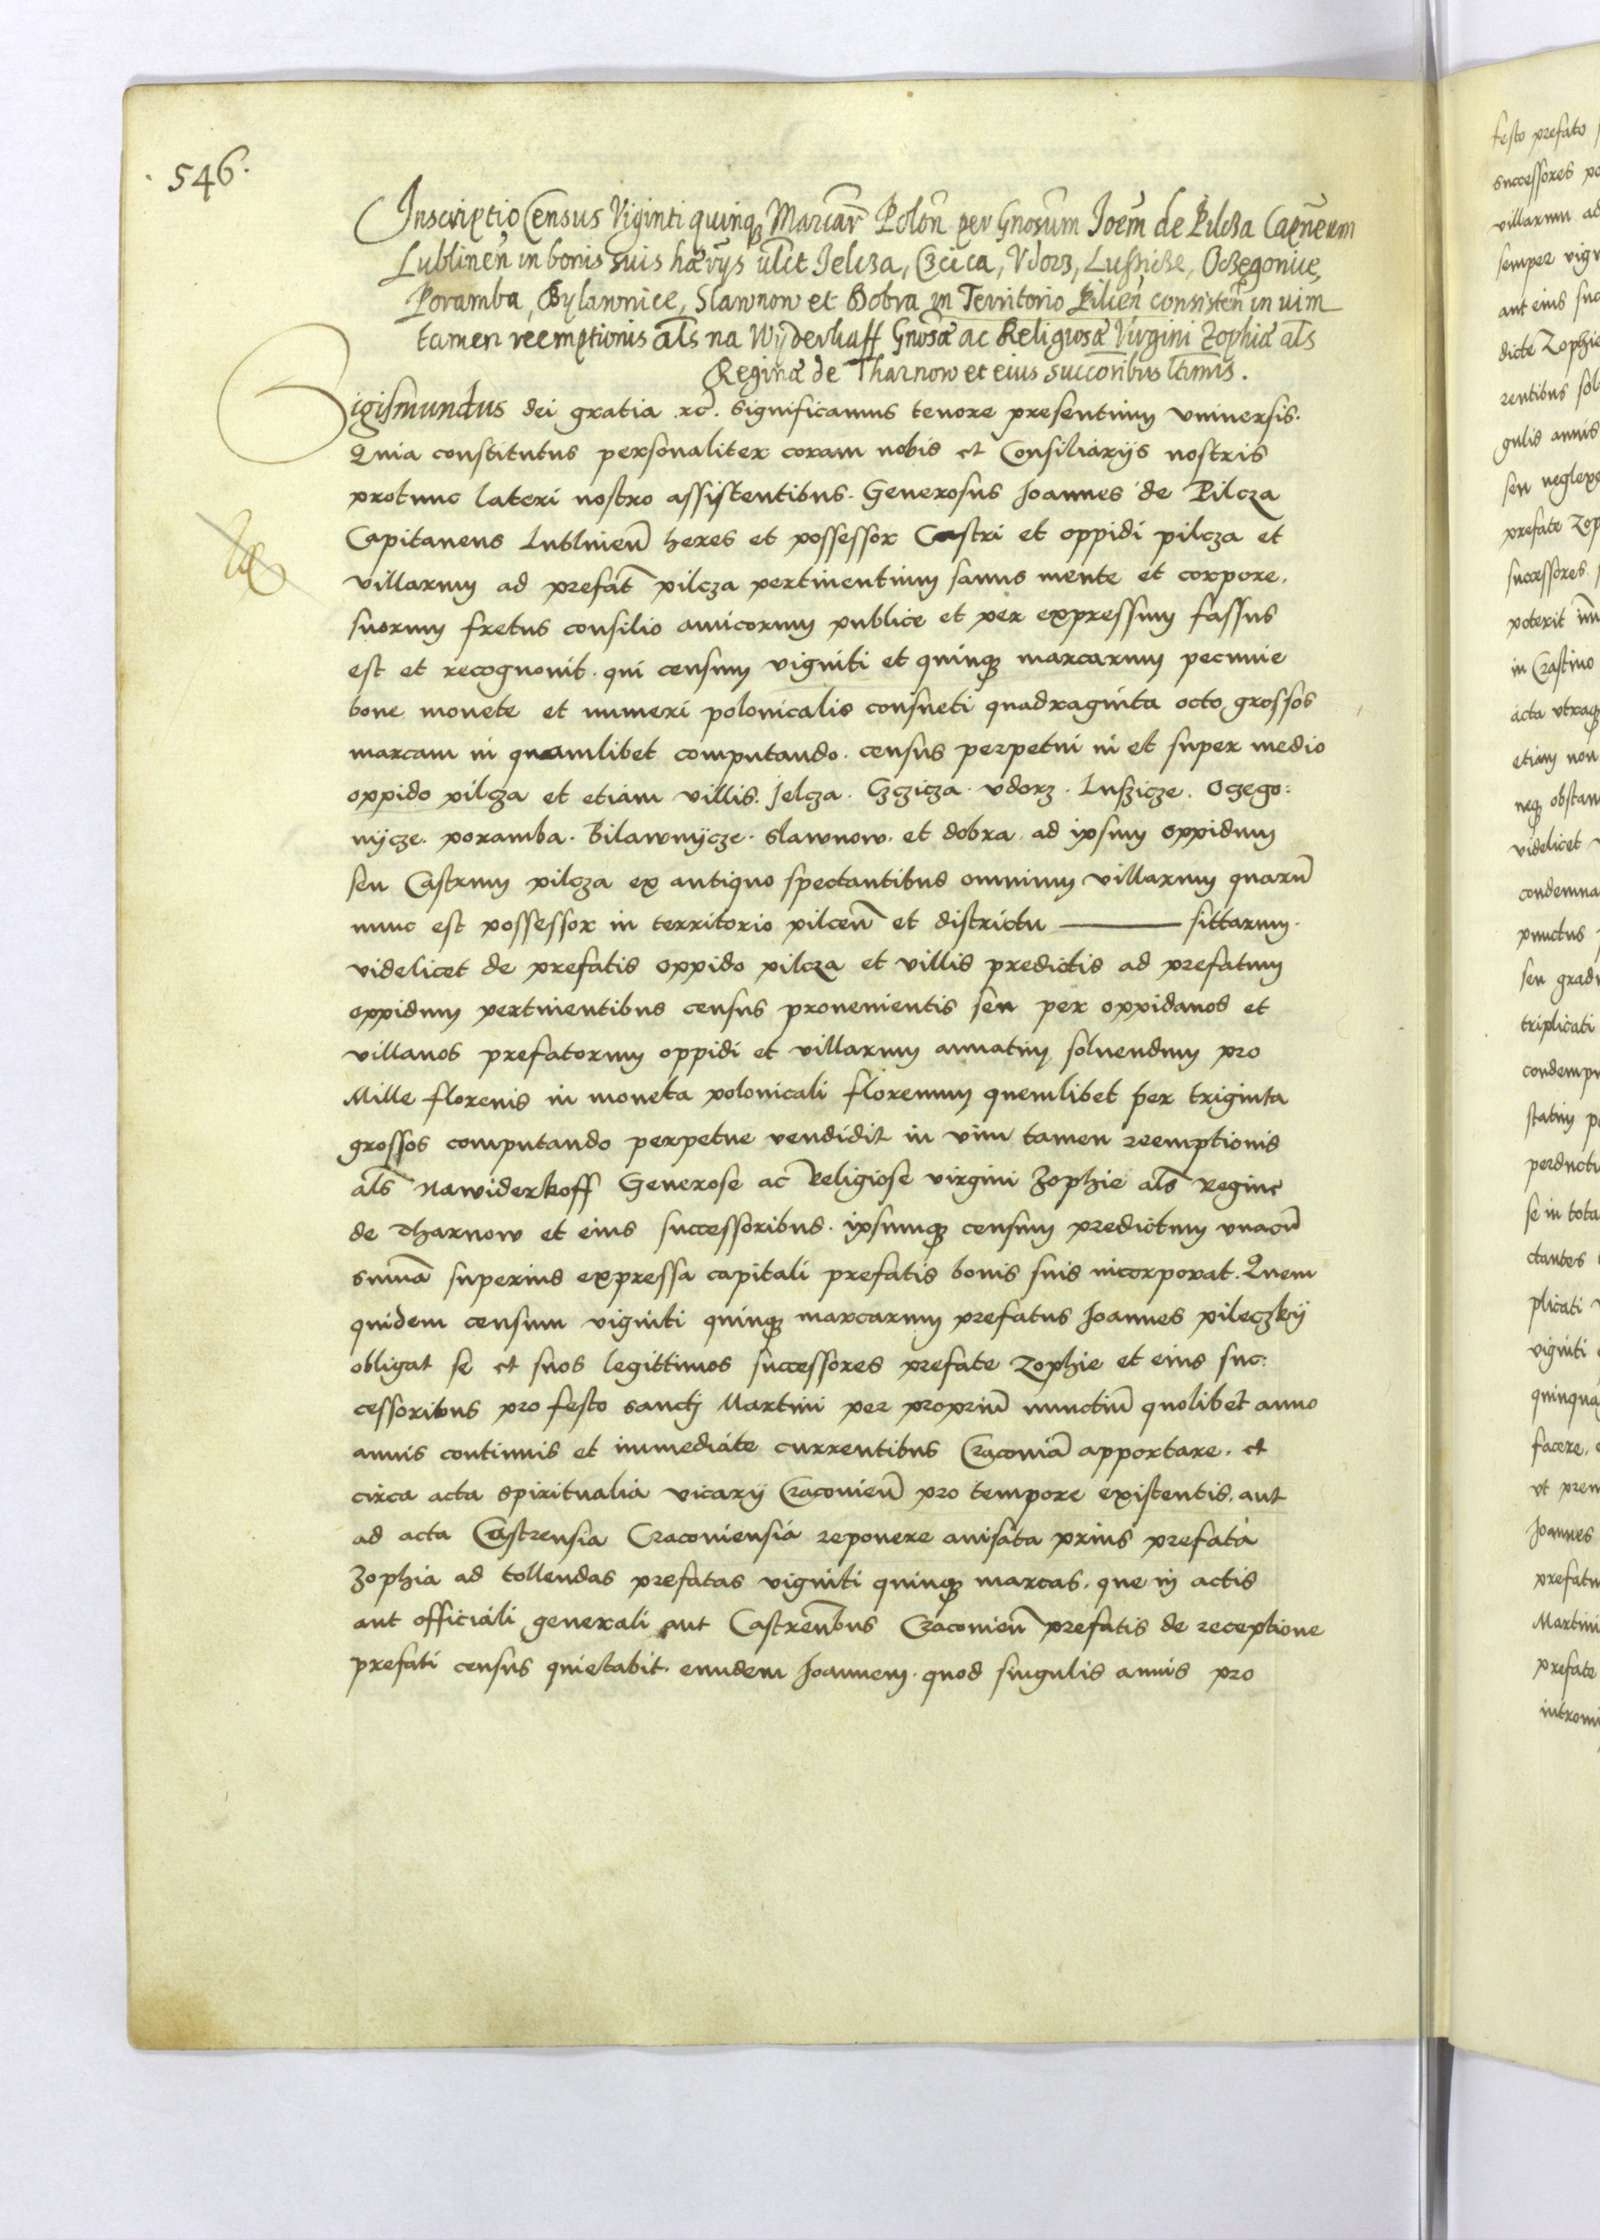 546.
Inscriptio Census Viginti quinq Marcar Polon per Gnosum Joem de Pilcza Capneum
Lublinen in bonis suis hærijs vlct Jelcza, Czcica, Vdorz, Lussicze, Oczegonice,
Poramba, Bylawnice, Slawnow et Dobra in Territorio Pilien consisten in uim
tamen reemptionis als na Wÿderkaff Gnosæ ac Religiosæ Virgini Zophiæ als
Reginæ de Tharnow et eius succoribus ltimis.
Sigismundus dei gratia rc. significamus tenore presentium vniuersis.
Quia constitutus personaliter coram nobis et Consiliarijs nostris
protunc lateri nostro assistentibus. Generosus Joannes de Pilcza
Capitaneus Lublinien heres et possessor Castri et oppidi pilcza et
villarum ad prefat pilcza pertinentium sanus mente et corpore.
suorum fretus consilio amicorum publice et per expressum fassus
est et recognouit. qui censum viginti et quinq marcarum pecunie
bone monete et numeri polonicalis consueti quadraginta octo grossos
marcam in quamlibet computando. census perpetui in et super medio
oppido pilcza et etiam villis. Jelcza. Czczicza. vdorz. Luszicze. Oczego:
nÿcze. poramba. Bilawnÿcze. Slawnow. et dobra. ad ipsum oppidum
seu Castrum pilcza ex antiquo spectantibus omnium villarum quaru
nunc est possessor in territorio pilcen et districtu ——— sittarum.
videlicet de prefatis oppido pilcza et villis predictis ad prefatum
oppidum pertinentibus census prouenientis seu per oppidanos et
villanos prefatorum oppidi et villarum annatim soluendum pro
Mille florenis in moneta polonicali florenum quemlibet per triginta
grossos computando perpetue vendidit in vim tamen reemptionis
als Nawiderkoff Generose ac Religiose virgini Zophie als Regine
de Tharnow et eius successoribus. ipsumq censum predictum vnacu
suma superius expressa capitali prefatis bonis suis incorporat. Quem
quidem censum viginti quinq marcarum prefatus Joannes pileczkÿ
obligat se et suos legittimos successores prefate Zophie et eius suc:
cessoribus pro festo sanctj Martini per propriu nunctiu quolibet anno
annis continuis et immediate currentibus Cracouia apportare. et
circa acta spiritualia vicarij Cracouien pro tempore existentis. aut
ad acta Castrensia Cracouiensia reponere auisata prius prefata
Zophia ad tollendas prefatas viginti quinq marcas. que in actis
aut officiali generali aut Castrenbus Cracouien prefatis de receptione
prefati census quietabit. eundem Joannem. quod singulis annis pro
festo prefato
successores
villarum ad
semper
aut eius suc
dicte Zophie
rentibus
gulis annis
seu neglexe
prefate Zop
successores
poterit
in Crastino
acta vtraq
etiam non
neq obstan
videlicet
condemna
punctus
seu gradu
triplicati
condempn
statim
perductu
se in tota
ctantes
plicati
viginti
quinqua
facere.
vt prem
Joannes
prefatu
Martini
prefate
intromi